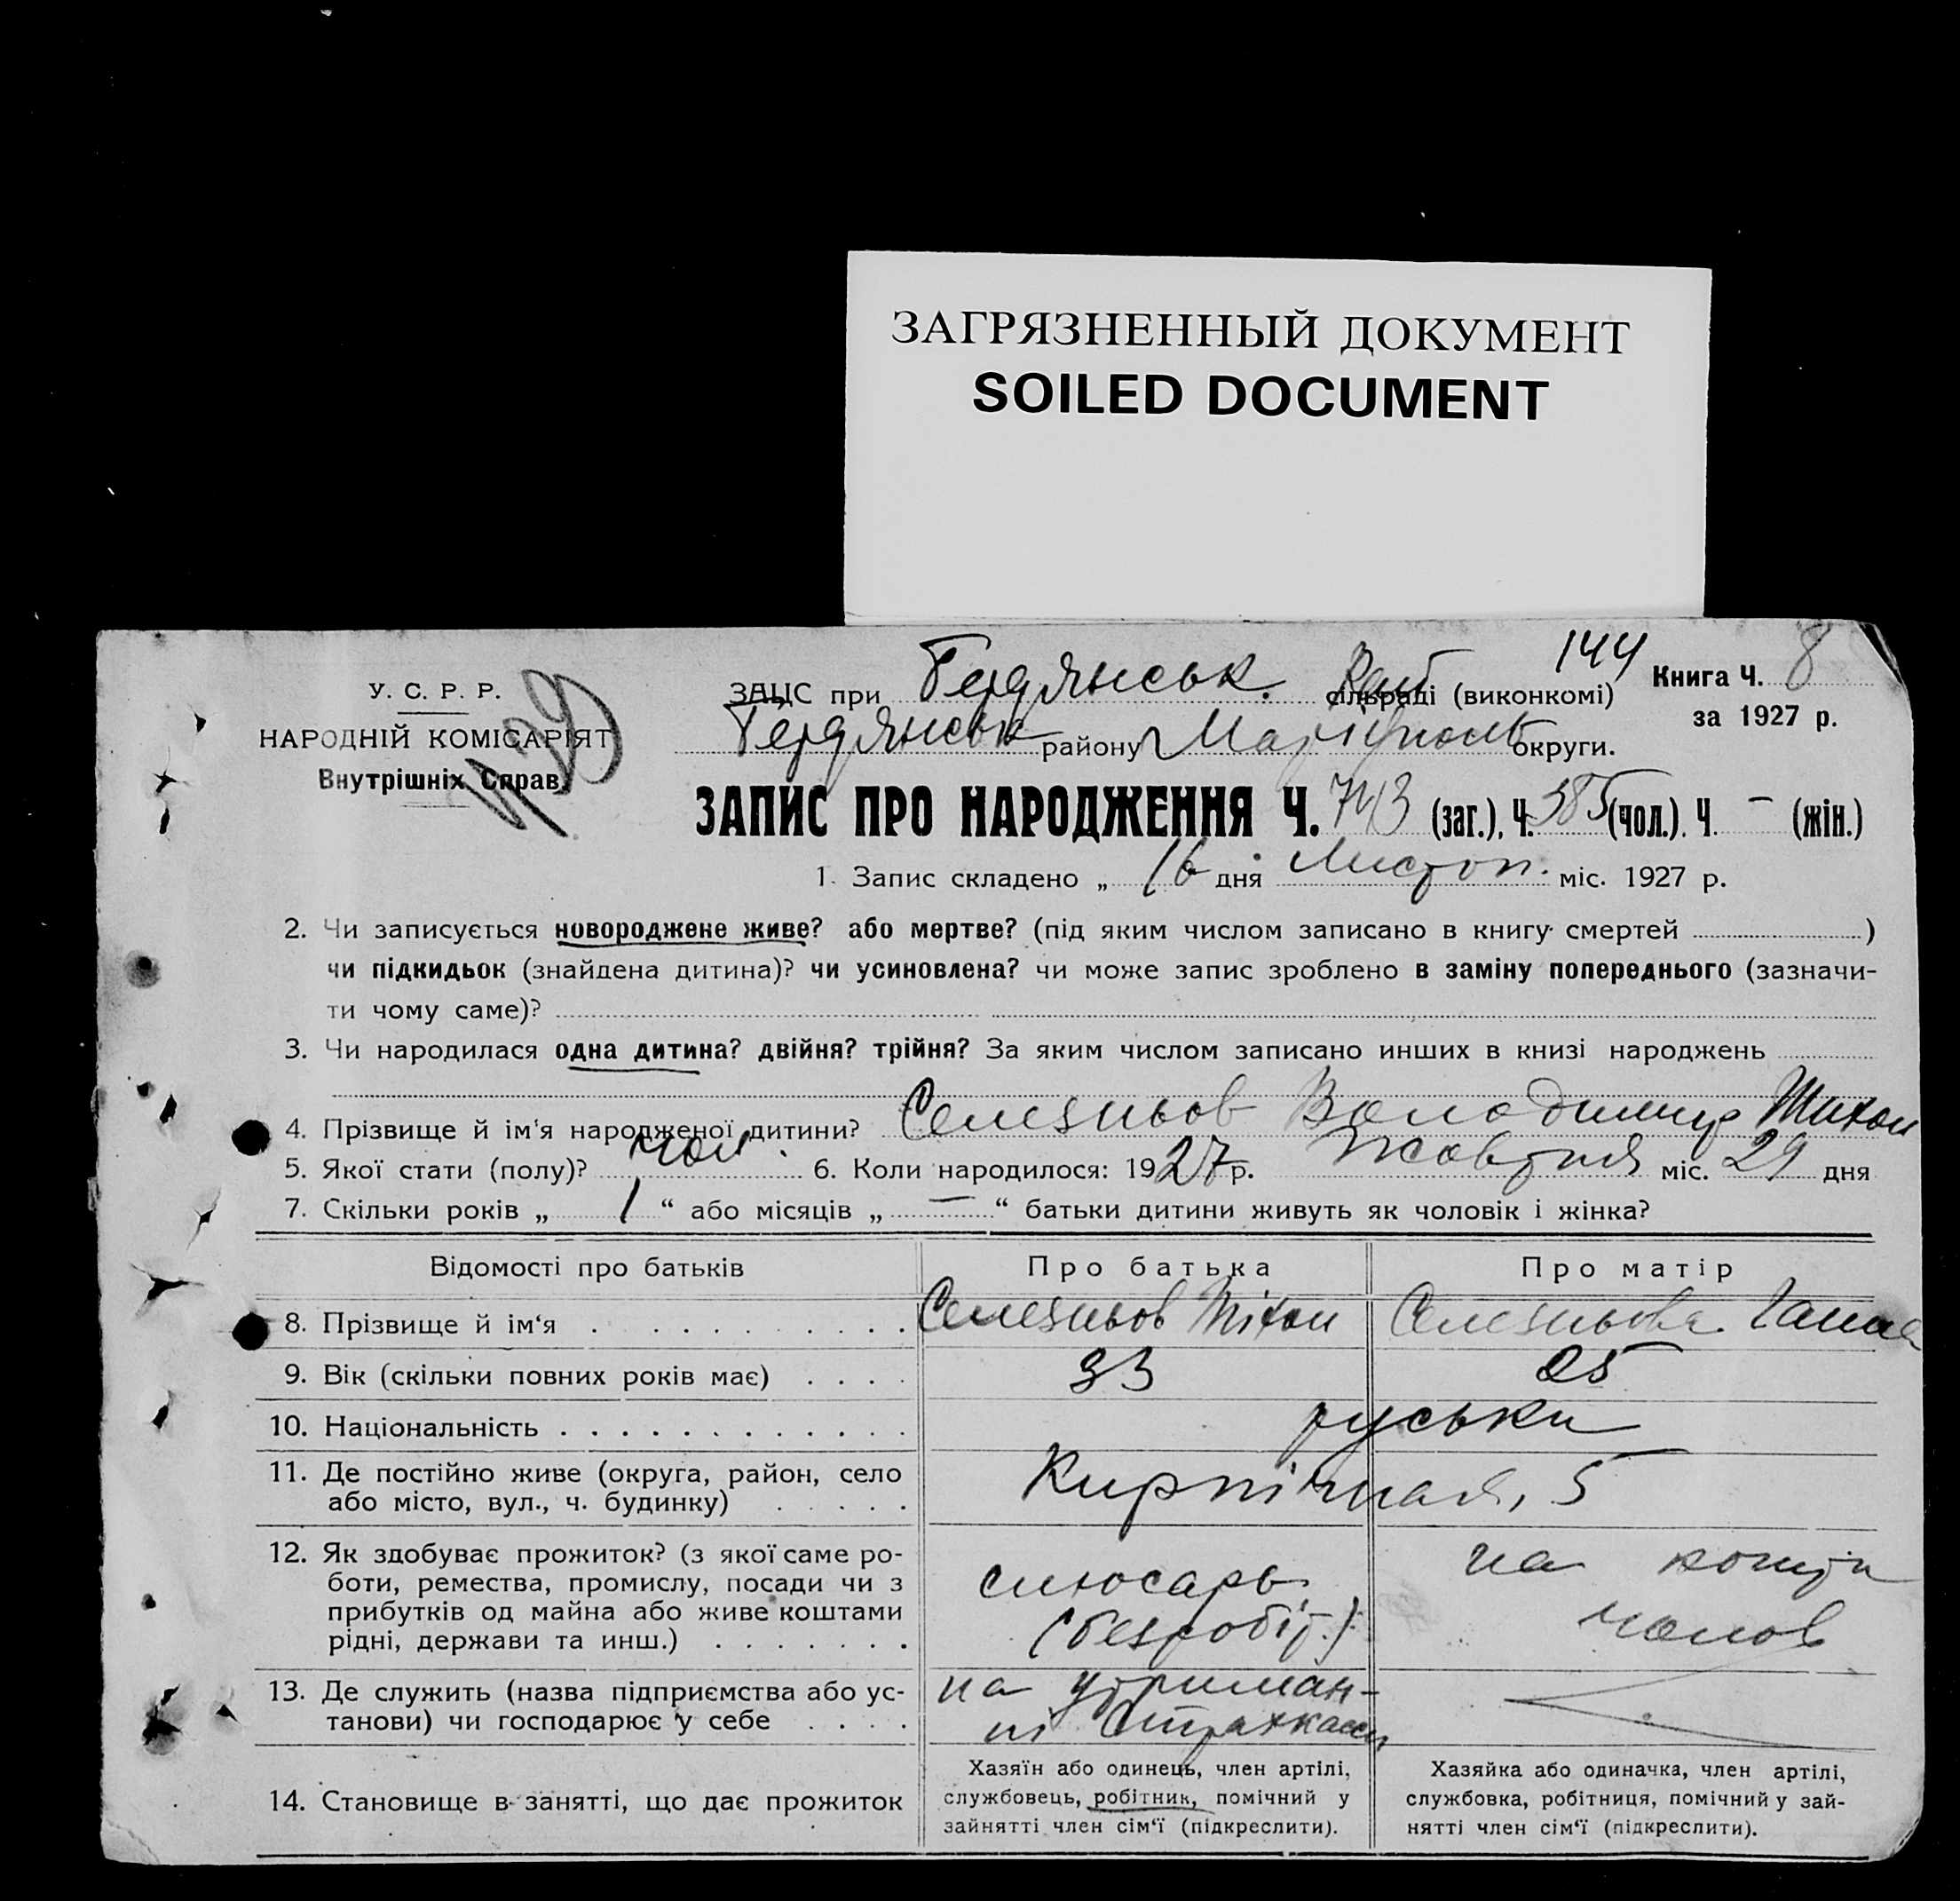 ЗАГРЯЗНЕННЫЙ ДОКУМЕНТ
SOILED DOCUMENT
144
У. С. Р. Р.
НАРОДНІЙ КОМІСАРІЯТ
Внутрішніх Справ
ЗАЦС при Бердянськ. сільраді (виконкомі)
Книга Ч. 8
за 1927 р.
Бердянськ району Маріупольь округи.
ЗАПИС ПРО НАРОДЖЕННЯ Ч. 743 (заг.), Ч. 385 (чол.). Ч. – (жін.)
1. Запис складено „ 16 дня Листоп. міс. 1927 р.
2. Чи записується новороджене живе? або мертве? (під яким числом записано в книгу смертей )
чи підкидьок (знайдена дитина)? чи усиновлена? чи може запис зроблено в заміну попереднього (зазначи-
ти чому саме)?
3. Чи народилася одна дитина? двійня? трійня? За яким числом записано инших в книзі народжень
4. Прізвище й ім'я народженої дитини? Селезньов Володимир Тихон
5. Якої стати (полу)? чол. 6. Коли народилося: 1927 р. Жовтня міс. 29 дня
7. Скільки років „ 1 “ або місяців „ — “ батьки дитини живуть як чоловік і жінка?
Відомості про батьків Про батька Про матір
8. Прізвище й ім‘я . . . . . . . . . . Селезньов Тіхон Селезньова Ганна
9. Вік (скільки повних років має) . . . . 33 25
10. Національність . . . . . . . . . . . . руськи
11. Де постійно живе (округа, район, село
або місто, вул., ч. будинку) . . . . . Кирпічная, 5
12. Як здобуває прожиток? (з якої саме ро-
боти, ремества, промислу, посади чи з
прибутків од майна або живе коштами
рідні, держави та инш.) . . . . . . .
слюсарь
(безробіт.)
на кошти
чолов
13. Де служить (назва підприємства або ус-
танови) чи господарює у себе . . . .
на утриман-
ні Страхкаси
14. Становище в занятті, що дає прожиток
Хазяїн або одинець, член артілі,
службовець, робітник, помічний у
зайнятті член сім‘ї (підкреслити).
Хазяйка або одиначка, член артілі,
службовка, робітниця, помічний у зай-
нятті член сім‘ї (підкреслити).